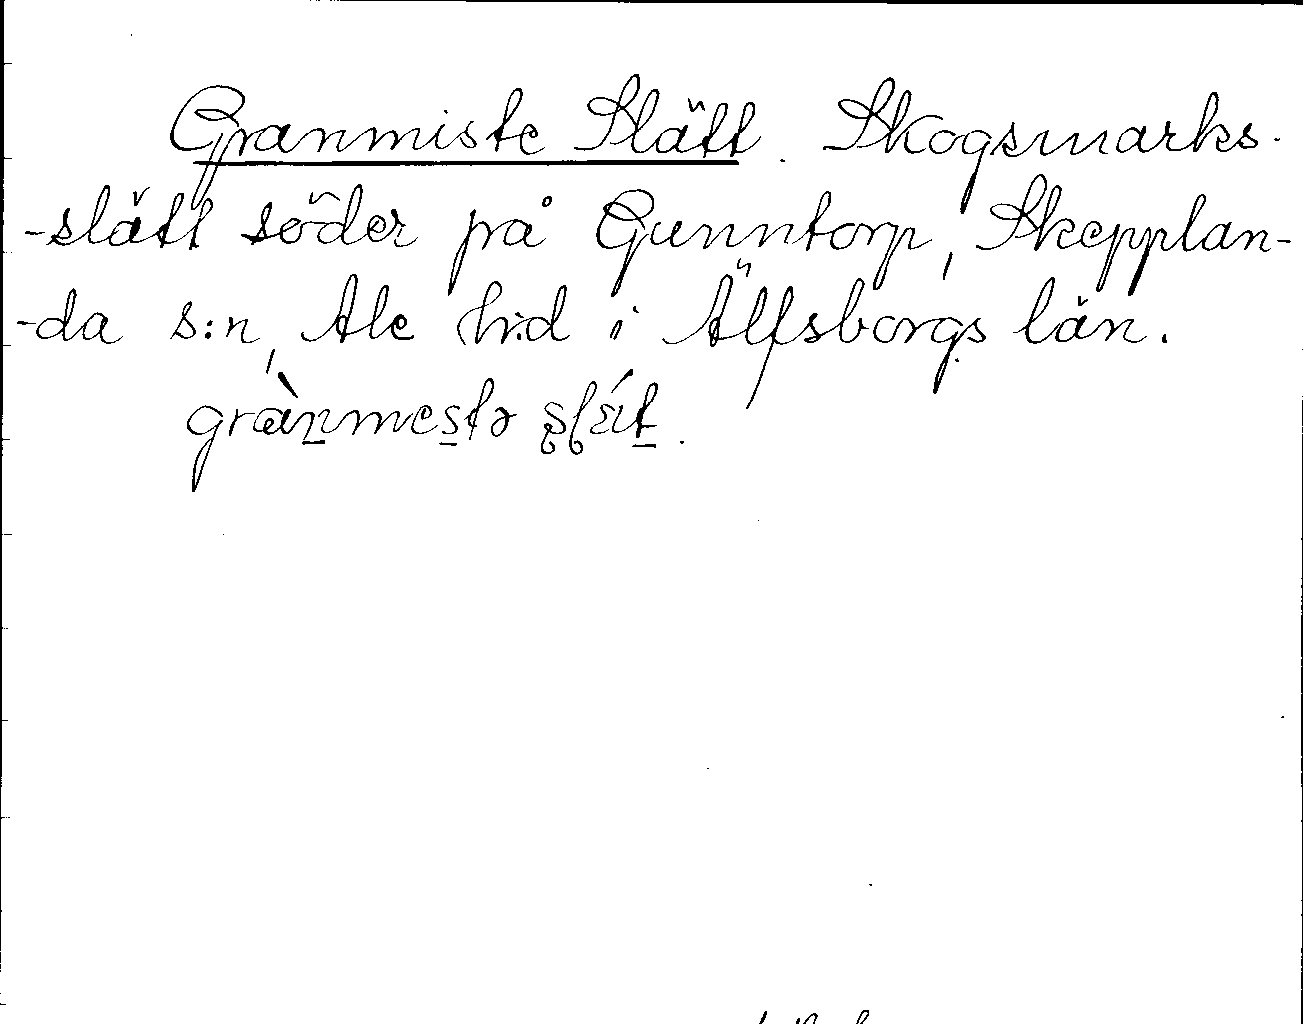 Granmiste Slätt. Skogsmarks-
-slätt söder på Gunntorp, Skepplan-
-da s:n, Ale h:d i Älfsborgs län.